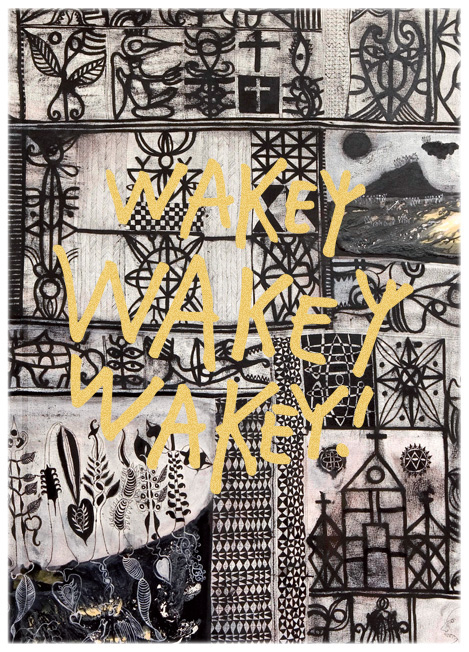 WAKEY
WAKEY
WAKEY!